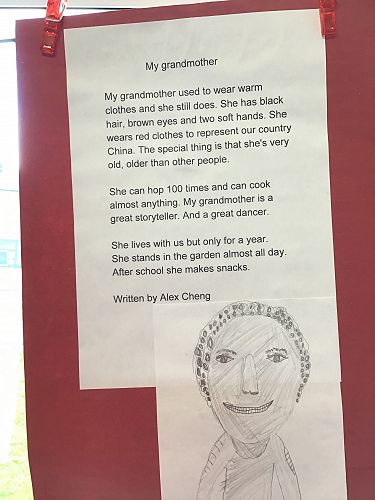 My grandmother
My grandmother used to wear warm
clothes and she still does. She has black
hair, brown eyes and two soft hands. She
wears red clothes to represent our country
China. The special thing is that she's very
old, older than other people.
She can hop 100 times and can cook
almost anything. My grandmother is a
great storyteller. And a great dancer.
She lives with us but only for a year.
She stands in the garden almost all day.
After school she makes snacks.
Written by Alex Cheng